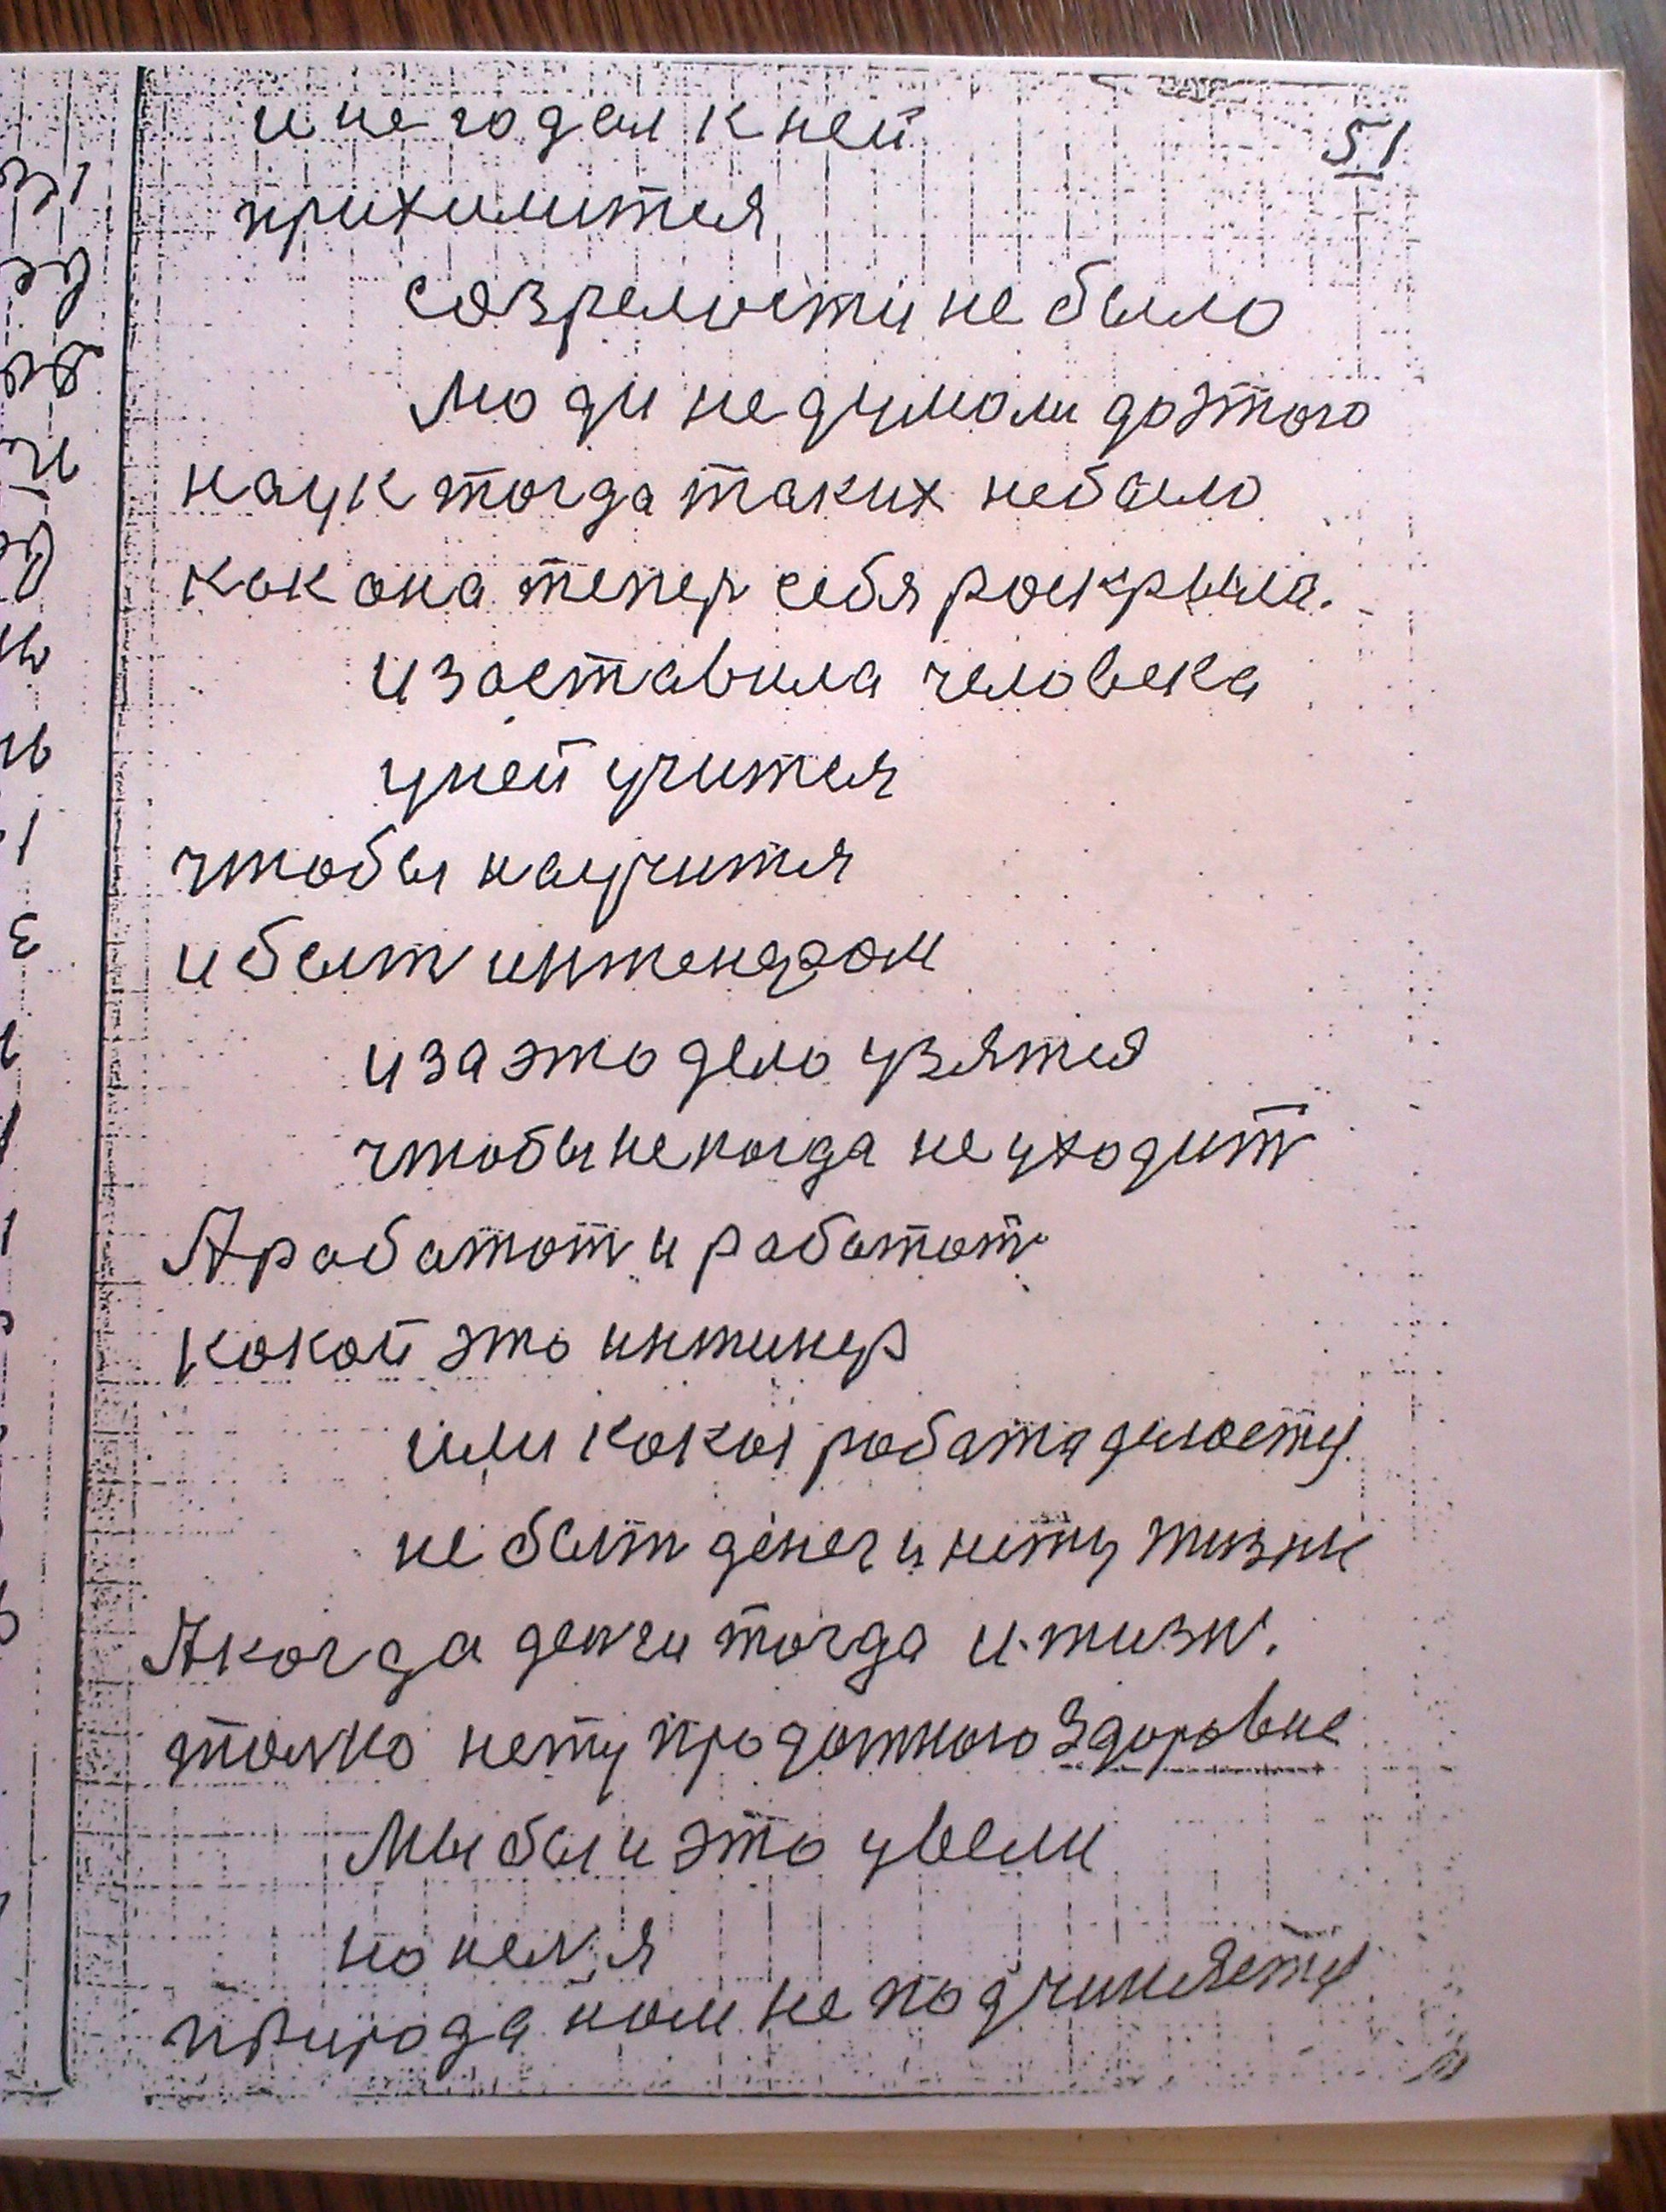 51
и не годел к ней
прихилится
созрелости не было
люди не думоли до этого
наук тогда таких небыло
как она тепер себя роскрыла.
и заставила человека
уней учится
чтобы научится
и быт интенером
и за это дело узятся
чтобы некогда не уходит
А работот и работот
кокой это интинер
или кокоя работа делоется
не быт денег и нету тизни
А когда денги тогда и тизн.
толко нету продотного здоровие
Мы бы и это увели
но нелзя
природа ном не подчиняется